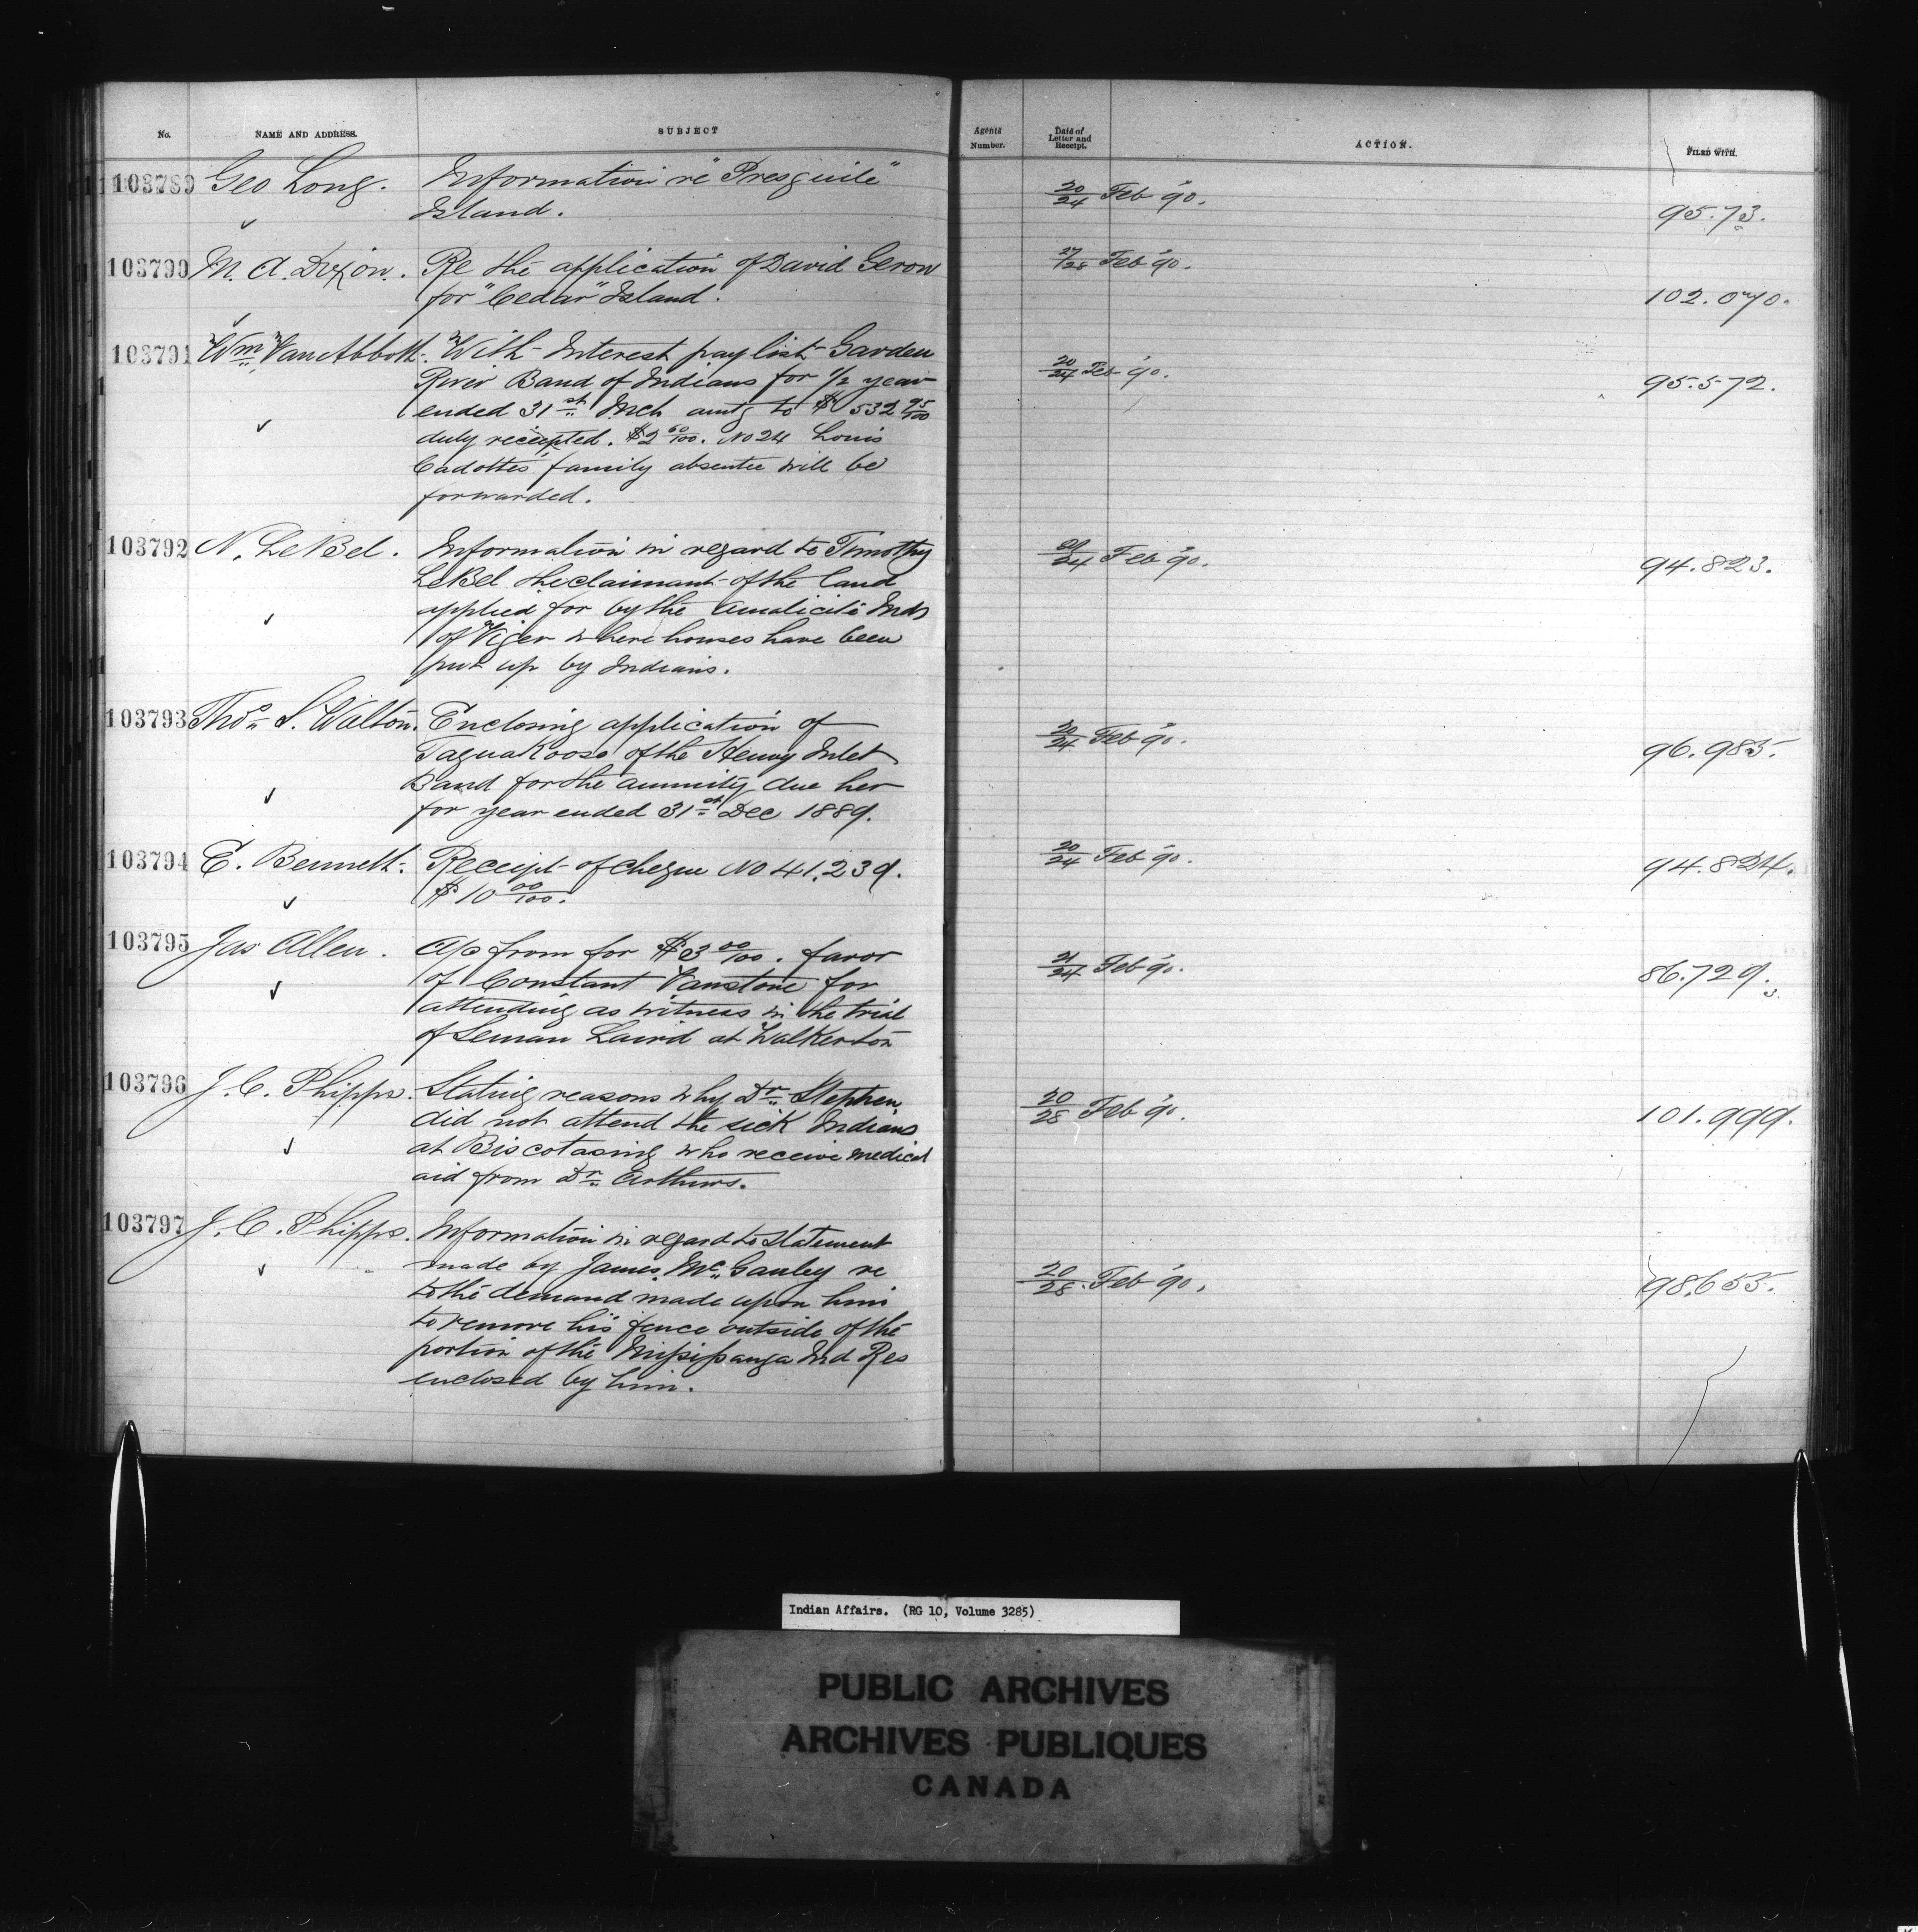 No. NAME AND ADDRESS. SUBJECT Agents Number. Date of Letter and Receipt. ACTION. FILED WITH.
103789 Geo Long. Information re "Presquile" 20/24 Feb '90.
Island. 95.73.
103790 M. A. Dixon. Re the application of David Geron 27/28 Feb '90.
for "Cedar" Island. 102.070.
103791 Wm Van Abbott. With Interest pay list Garden
River Band of Indians for 1/2 year 20/24 Feb '90. 95.572.
ended 31st Mch amtg to $532 95/100
duly receipted. $2 60/100. No 24 Louis
Cadottes family absentee will be
forwarded.
103792 N. LeBel. Information in regard to Timothy 21/24 Feb '90. 94.823.
LeBel the claimant of the land
applied for by the Amalicite Inds
of Viger where houses have been
put up by Indians.
103793 Thos S. Walton. Enclosing application of 20/24 Feb '90.
Taguakoose of the Henvy Inlet 96.985.
Band for the annuity due her
for year ended 31st Dec 1889.
103794 E. Bennett. Receipt of cheque No 41.239. 20/24 Feb '90. 94.824.
$10 00/100.
103795 Jas Allen. A/c from for $3 00/100. favor
of Constant Vanstone for 21/24 Feb '90. 86.729.
attending as witness in the trial 3.
of Leman Laird at Walkerton
103796 J. C. Phipps. Stating reasons why Dr Stephen
did not attend the sick Indians 20/28 Feb '90. 101.999.
at Biscotasing who receive medical
aid from Dr Arthurs.
103797 J. C. Phipps. Information in regard to statement
made by James McGauley re 20/28 Feb '90. 98.655.
to the demand made upon him
to remove his fence outside of the
portion of the Missisanga Ind Res
enclosed by him.
Indian Affairs. (RG 10, Volume 3285)
PUBLIC ARCHIVES
ARCHIVES PUBLIQUES
CANADA